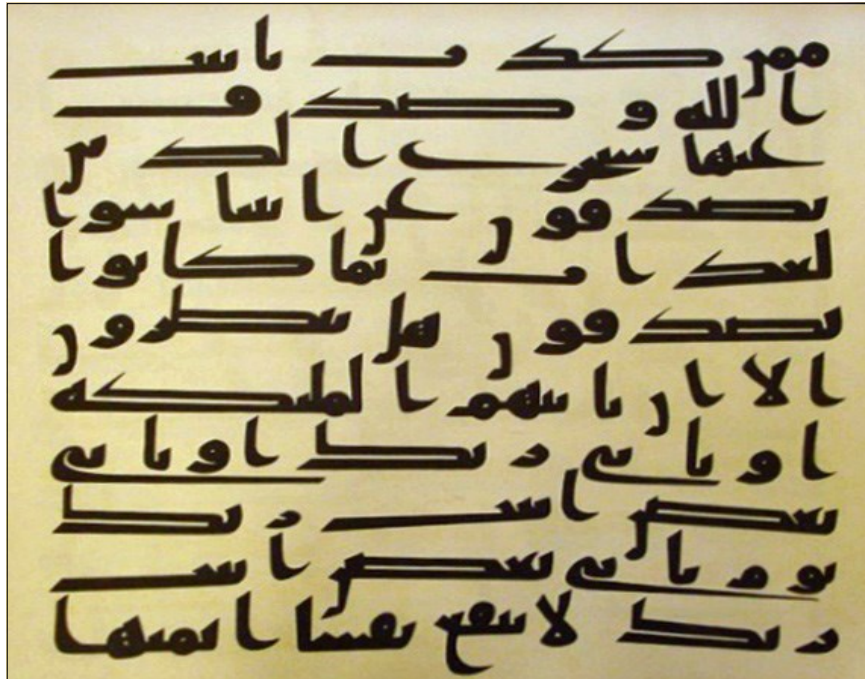 ممن كذب بايت
الله وصدف
عنها سنجزي الذين
يصدفون عن ايتنا سو ا
لعذاب بما كانوا
يصدفون هل ينظرون
الا ان تاتيهم الملئكه
او ياتي ربك او ياتي
بعض ايت ربك
يوم ياتي بعض ايت
ربك لا ينفع نفسا ايمنها